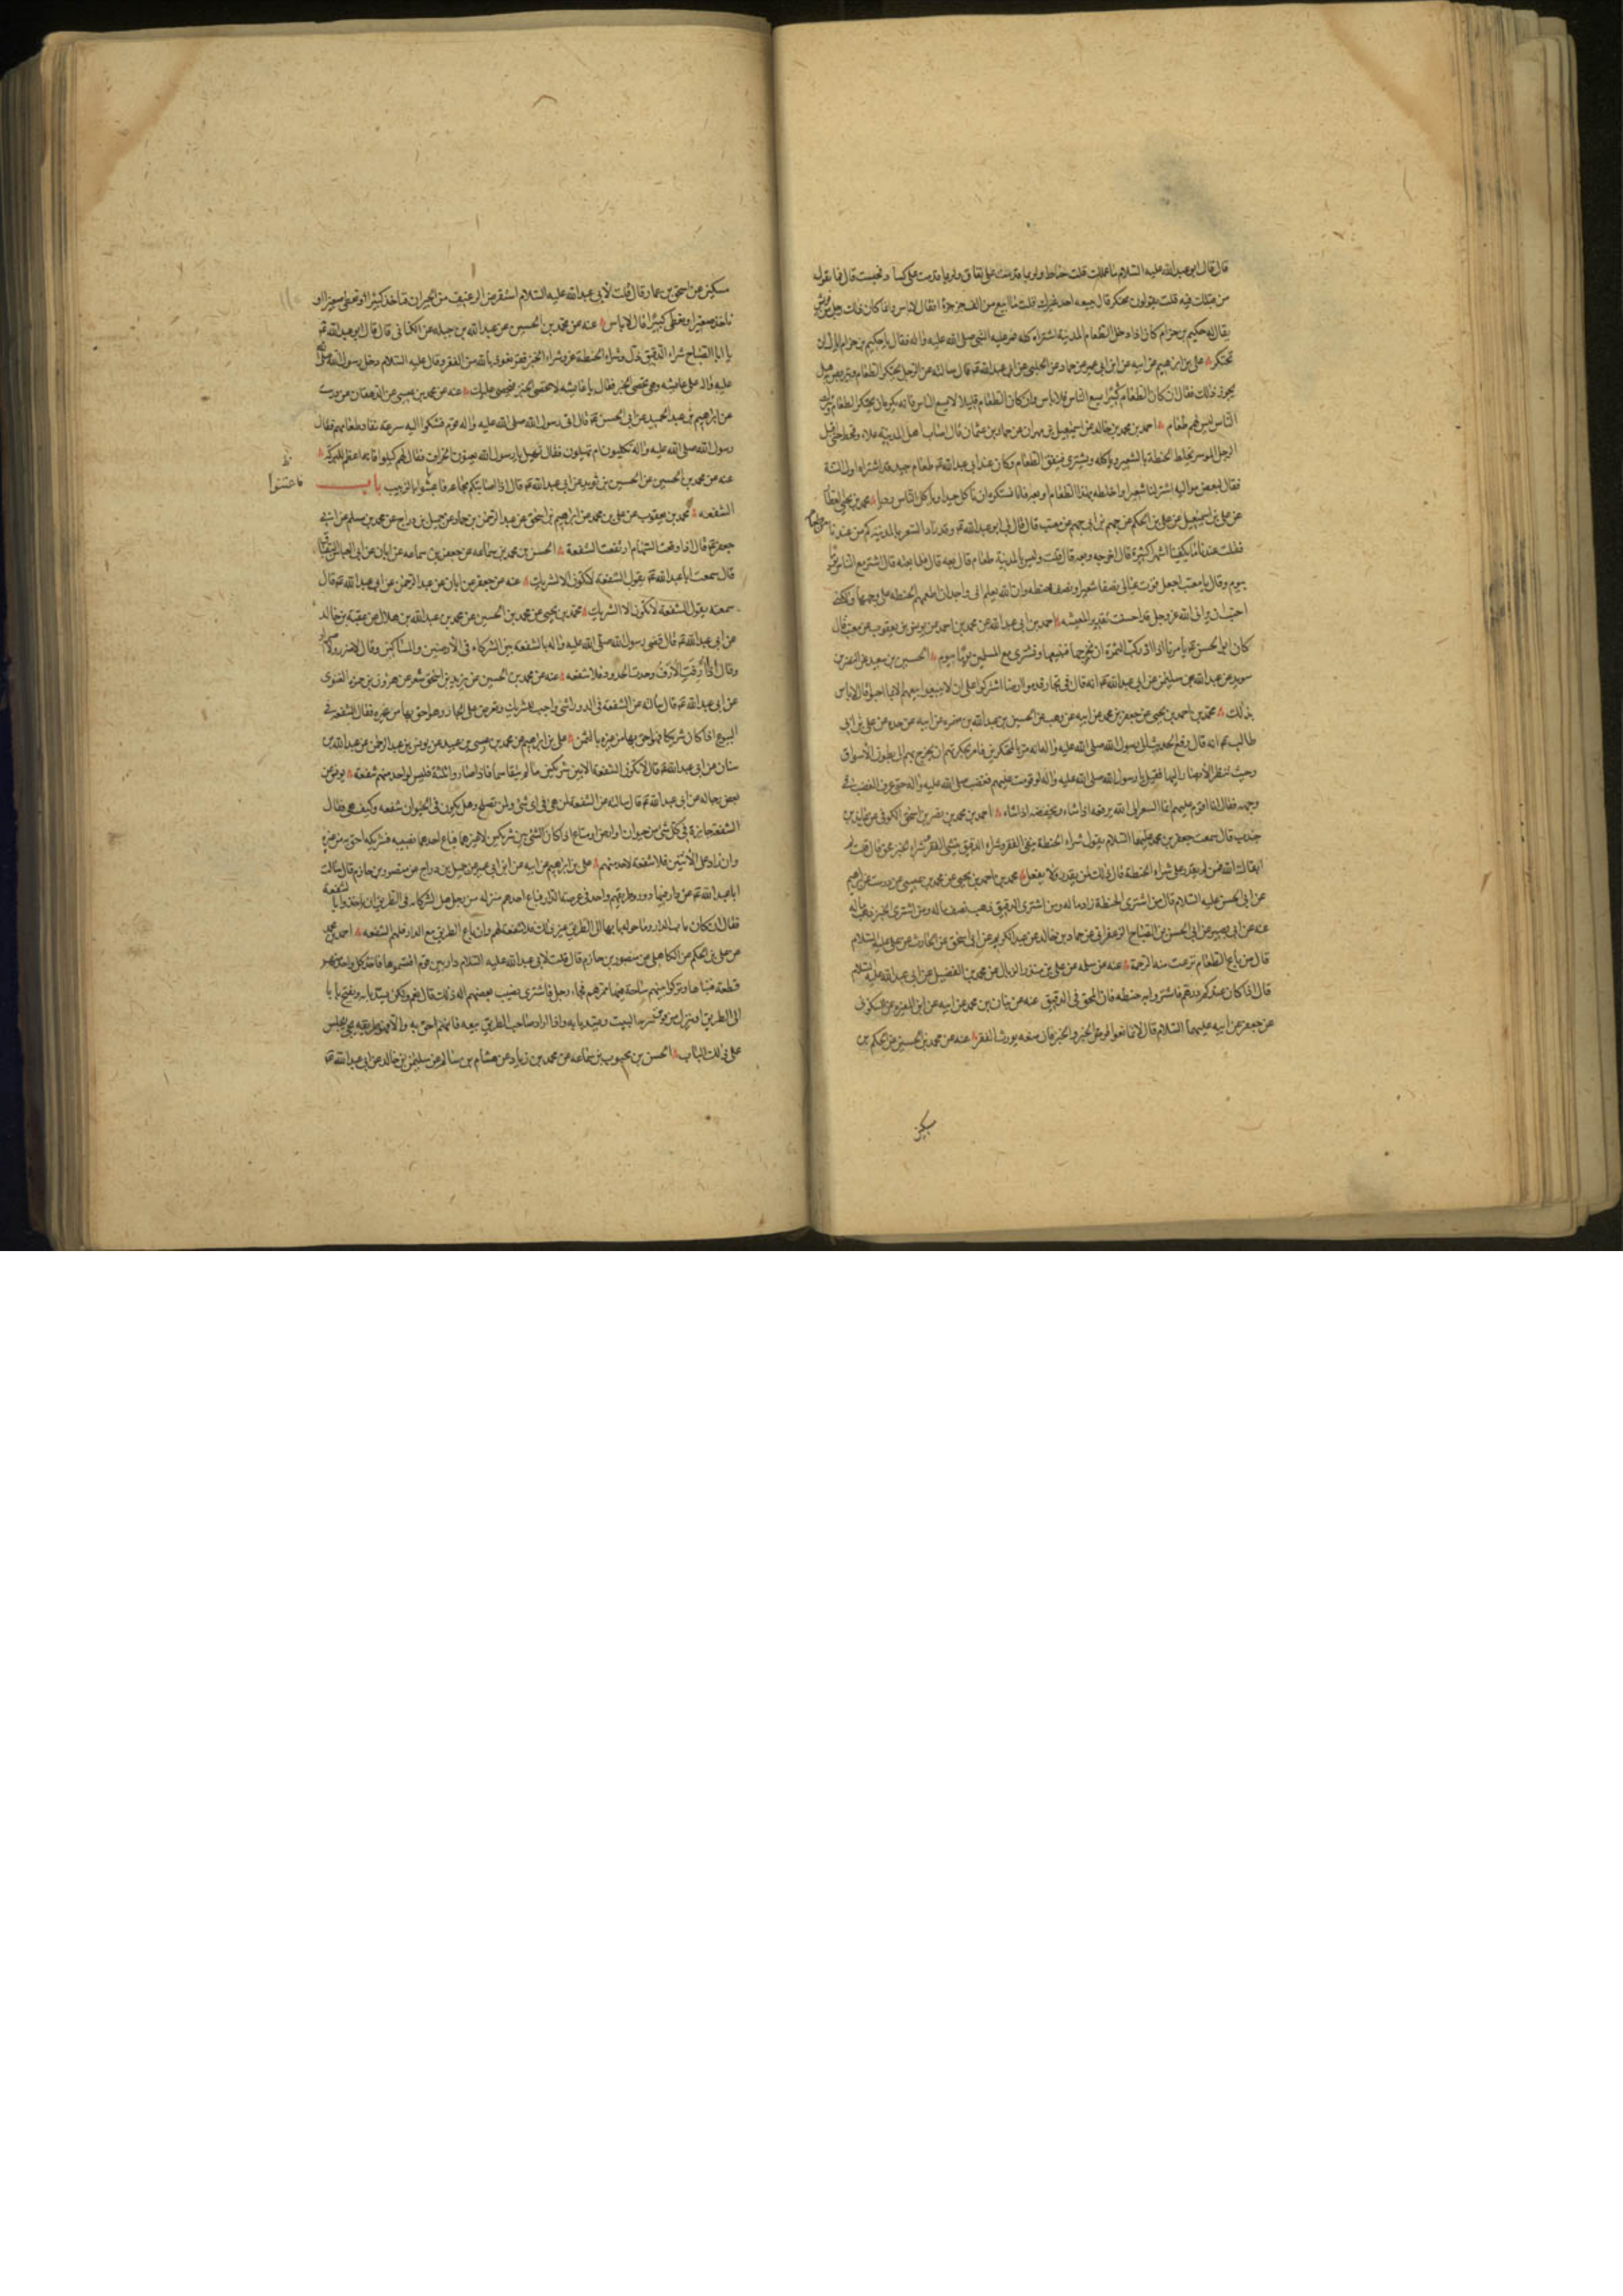 قال قال ابو عبدالله عليه السلام ما عملك قلت حناط وربما قدمت على نفاق وربما قدمت على كساد فحبست قال فما يقول
من قبلك فيه قلت يقولون محتكر قال يبيعه احد غيرك قلت ما ابيع من الف جزء جزءا فقال لا باس انما كان ذلك رجل من قريش
يقال له حكيم بن حزام كان اذا دخل الطعام المدينة اشتراه كله فمر عليه النبي صلى الله عليه واله فقال يا حكيم بن حزام اياك ان
تحتكر علي بن ابرهيم عن ابيه عن ابن ابي عمير عن حماد عن الحلبي عن ابي عبدالله قال سالته عن الرجل يحتكر الطعام ويتربص هل
يجوز ذلك فقال ان كان الطعام كثيرا يسع الناس فلا باس وان كان الطعام قليلا لا يسع الناس فانه يكره ان يحتكر الطعام ويترك
الناس ليس لهم طعام احمد بن محمد بن خالد عن اسمعيل بن مهران عن حماد بن عثمان قال اصاب اهل المدينة غلاء وقحط حتى اقبل
الرجل الموسر يخلط الحنطة بالشعير وياكله ويشتري ببعض الطعام وكان عند ابي عبدالله طعام جيد قد اشتراه اول السنة
فقال لبعض مواليه اشتر لنا شعيرا واخلطه بهذا الطعام او بعه فانا نكره ان ناكل جيدا وياكل الناس رديا محمد بن يحيى العطار
عن علي بن اسمعيل عن علي بن الحكم عن جهم بن ابي جهم عن معتب قال قال لي ابو عبدالله وقد تزايد السعر بالمدينة كم عندنا من طعام
فقلت عندنا ما يكفينا اشهر كثيرة قال اخرجه وبعه قال قلت وليس بالمدينة طعام قال بعه قال فلما بعته قال اشتر مع الناس يوما
بيوم وقال يا معتب اجعل قوت عيالي نصفا شعيرا ونصف حنطة وان الله يعلم اني واجد ان اطعمهم الحنطة على وجهها ولكني
احببت ان يراني الله عز وجل قد احسنت تقدير المعيشه احمد بن ابي عبدالله عن محمد بن احمد عن يونس بن يعقوب عن معتب قال
كان ابو الحسن يأمرنا اذا ادركت الثمرة ان نخرجها فنبيعها ونشتري مع المسلمين يوما بيوم الحسين بن سعيد عن النضر بن
سويد عن عبدالله بن سليمن عن ابي عبدالله انه قال في تجار قدموا ارضا اشتركوا على ان لا يبيعوا بيعهم الا بما احبوا قال لا باس
بذلك محمد بن احمد بن يحيى عن جعفر بن محمد عن ابيه عن وهب عن الحسين بن عبدالله بن ضمره عن ابيه عن جده عن علي بن ابي
طالب انه قال رفع الحديث الى رسول الله صلى الله عليه واله انه مر بالمحتكرين فامر بحكرتهم ان يخرج بهم الى بطون الاسواق
وحيث تنظر الابصار اليها فقيل يا رسول الله صلى الله عليه واله لو قومت عليهم فغضب صلى الله عليه واله حتى عرف الغضب في
وجهه فقال انا اقوم عليهم انما السعر الى الله يرفعه اذا شاء ويخفضه اذا شاء احمد بن محمد بن نصر بن اسحق الكوفي عن عباد بن
حبيب قال سمعت جعفر بن محمد عليهما السلام يقول شراء الحنطة ينفي الفقر وشراء الدقيق ينشئ الفقر وشراء الخبز محق قال قلت له
ابقاك الله فمن لم يقدر على شراء الحنطة قال ذلك لمن يقدر ولا يفعل محمد بن احمد بن يحيى عن محمد بن عيسى عن درست عن ابرهيم
عن ابي الحسن عليه السلام قال من اشترى الحنطة زاد ماله ومن اشترى الدقيق ذهب نصف ماله ومن اشترى الخبز ذهب ماله
عنه عن ابي بصير عن ابي الحسن بن الصباح الزعفراني عن حماد بن خالد عن عبد الكريم عن ابي اسحق عن الحارث عن علي عليه السلام
قال من باع الطعام نزعت منه الرحمة عنه عن سلمه عن علي بن منذر الزبال عن محمد بن الفضيل عن ابي عبدالله عليه السلام
قال اذا كان عندكم درهم فاشتروا به حنطه فان المحق في الدقيق عنه عن بنان بن محمد عن ابيه عن ابن المغيره عن السكوني
عن جعفر عن ابيه عليهما السلام قال لا تمانعوا قرض الخمير والخبز فان منعه يورث الفقر عنه عن محمد بن الحسين عن الحكم بن
مسكين
مسكين عن اسحق بن عمار قال قلت لابي عبدالله عليه السلام استقرض الرغيف من الجيران فناخذ كبيرا ونعطي صغيرا او
ناخذ صغيرا ونعطي كبيرا قال لا باس عنه عن محمد بن الحسين عن عبدالله بن جبله عن الكناني قال قال ابو عبدالله
يا ابا الصباح شراء الدقيق ذل وشراء الحنطة عز وشراء الخبز فقر فنعوذ بالله من الفقر وقال عليه السلام دخل رسول الله صلى الله
عليه واله على عايشه وهي تحصي الخبز فقال يا عايشه لا تحصي الخبز فيحصى عليك عنه عن محمد بن عيسى عن الدهقان عن درست
عن ابرهيم بن عبد الحميد عن ابي الحسن قال اتى رسول الله صلى الله عليه واله قوم فشكوا اليه سرعة نفاد طعامهم فقال
رسول الله صلى الله عليه واله تكيلون ام تهيلون فقال نهيل يا رسول الله يعنون الجزاف فقال لهم كيلوا فانه اعظم للبركة
عنه عن محمد بن الحسين عن الحسين بن ثوير عن ابي عبدالله قال اذا اصابتكم مجاعه فاعبثوا بالزبيب باب
فاعتنوا ظ
الشفعه محمد بن يعقوب عن علي بن محمد عن ابراهيم بن اسحق عن عبد الرحمن بن حماد عن جميل بن دراج عن محمد بن مسلم عن ابي
جعفر قال اذا وقعت السهام ارتفعت الشفعة الحسن بن محمد بن سماعه عن جعفر بن سماعه عن ابان عن ابي العباس البقباق
قال سمعت ابا عبدالله يقول الشفعه لا تكون الا لشريك عنه عن جعفر عن ابان عن عبد الرحمن عن ابي عبدالله قال
سمعته يقول الشفعه لا تكون الا لشريك محمد بن يحيى عن محمد بن الحسين عن محمد بن عبدالله بن هلال عن عقبة بن خالد
عن ابي عبدالله قال قضى رسول الله صلى الله عليه واله بالشفعه بين الشركاء في الارضين والمساكن وقال لا ضرر ولا ضرار
وقال اذا ارفت الارف وحدت الحدود فلا شفعه عنه عن محمد بن الحسين عن يزيد بن اسحق شعر عن هرون بن حمزه الغنوي
عن ابي عبدالله قال سالته عن الشفعه في الدور اشئ واجب للشريك ويعرض على الجار وهو احق بها من غيره فقال الشفعه في
البيوع اذا كان شريكا فهو احق بها من غيره بالثمن علي بن ابراهيم عن محمد بن عيسى بن عبيد عن يونس بن عبد الرحمن عن عبدالله بن
سنان عن ابي عبدالله قال لا تكون الشفعة الا بين شريكين ما لم يتقاسما فاذا صاروا ثلثة فليس لواحد منهم شفعه يونس عن
بعض رجاله عن ابي عبدالله قال سالته عن الشفعة لمن هي وفي اي شئ ولمن تصلح وهل يكون في الحيوان شفعه وكيف هي فقال
الشفعة جايزة في كل شئ من حيوان او ارض او متاع اذا كان الشئ بين شريكين لا غيرهما فباع احدهما نصيبه فشريكه احق به من غيره
وان زاد على الاثنين فلا شفعة لاحد منهم علي بن ابراهيم عن ابيه عن ابن ابي عمير عن جميل بن دراج عن منصور بن حازم قال سالت
ابا عبدالله عن دار فيها دور وطريقهم واحد في عرصة الدار فباع احدهم منزله من رجل هل لشركائه في الطريق ان ياخذوا بالشفعة
فقال ان كان باع الدار وحول بابها الى طريق غير ذلك فلا شفعة لهم وان باع الطريق مع الدار فلهم الشفعه احمد بن محمد
عن علي بن الحكم عن الكاهلي عن منصور بن حازم قال قلت لابي عبدالله عليه السلام دار بين قوم اقتسموها فاخذ كل واحد منهم
قطعة فبناها وتركوا بينهم ساحة فيها ممرهم فجاء رجل فاشترى نصيب بعضهم اله ذلك قال نعم ولكن يسد بابه ويفتح بابا
الى الطريق او ينزل من فوق البيت ويسد بابه واذا اراد صاحب الطريق بيعه فانهم احق به والا فهو طريقه يجئ يجلس
على ذلك الباب الحسن بن محبوب بن سماعه عن محمد بن زياد عن هشام بن سالم عن سليمن بن خالد عن ابي عبدالله